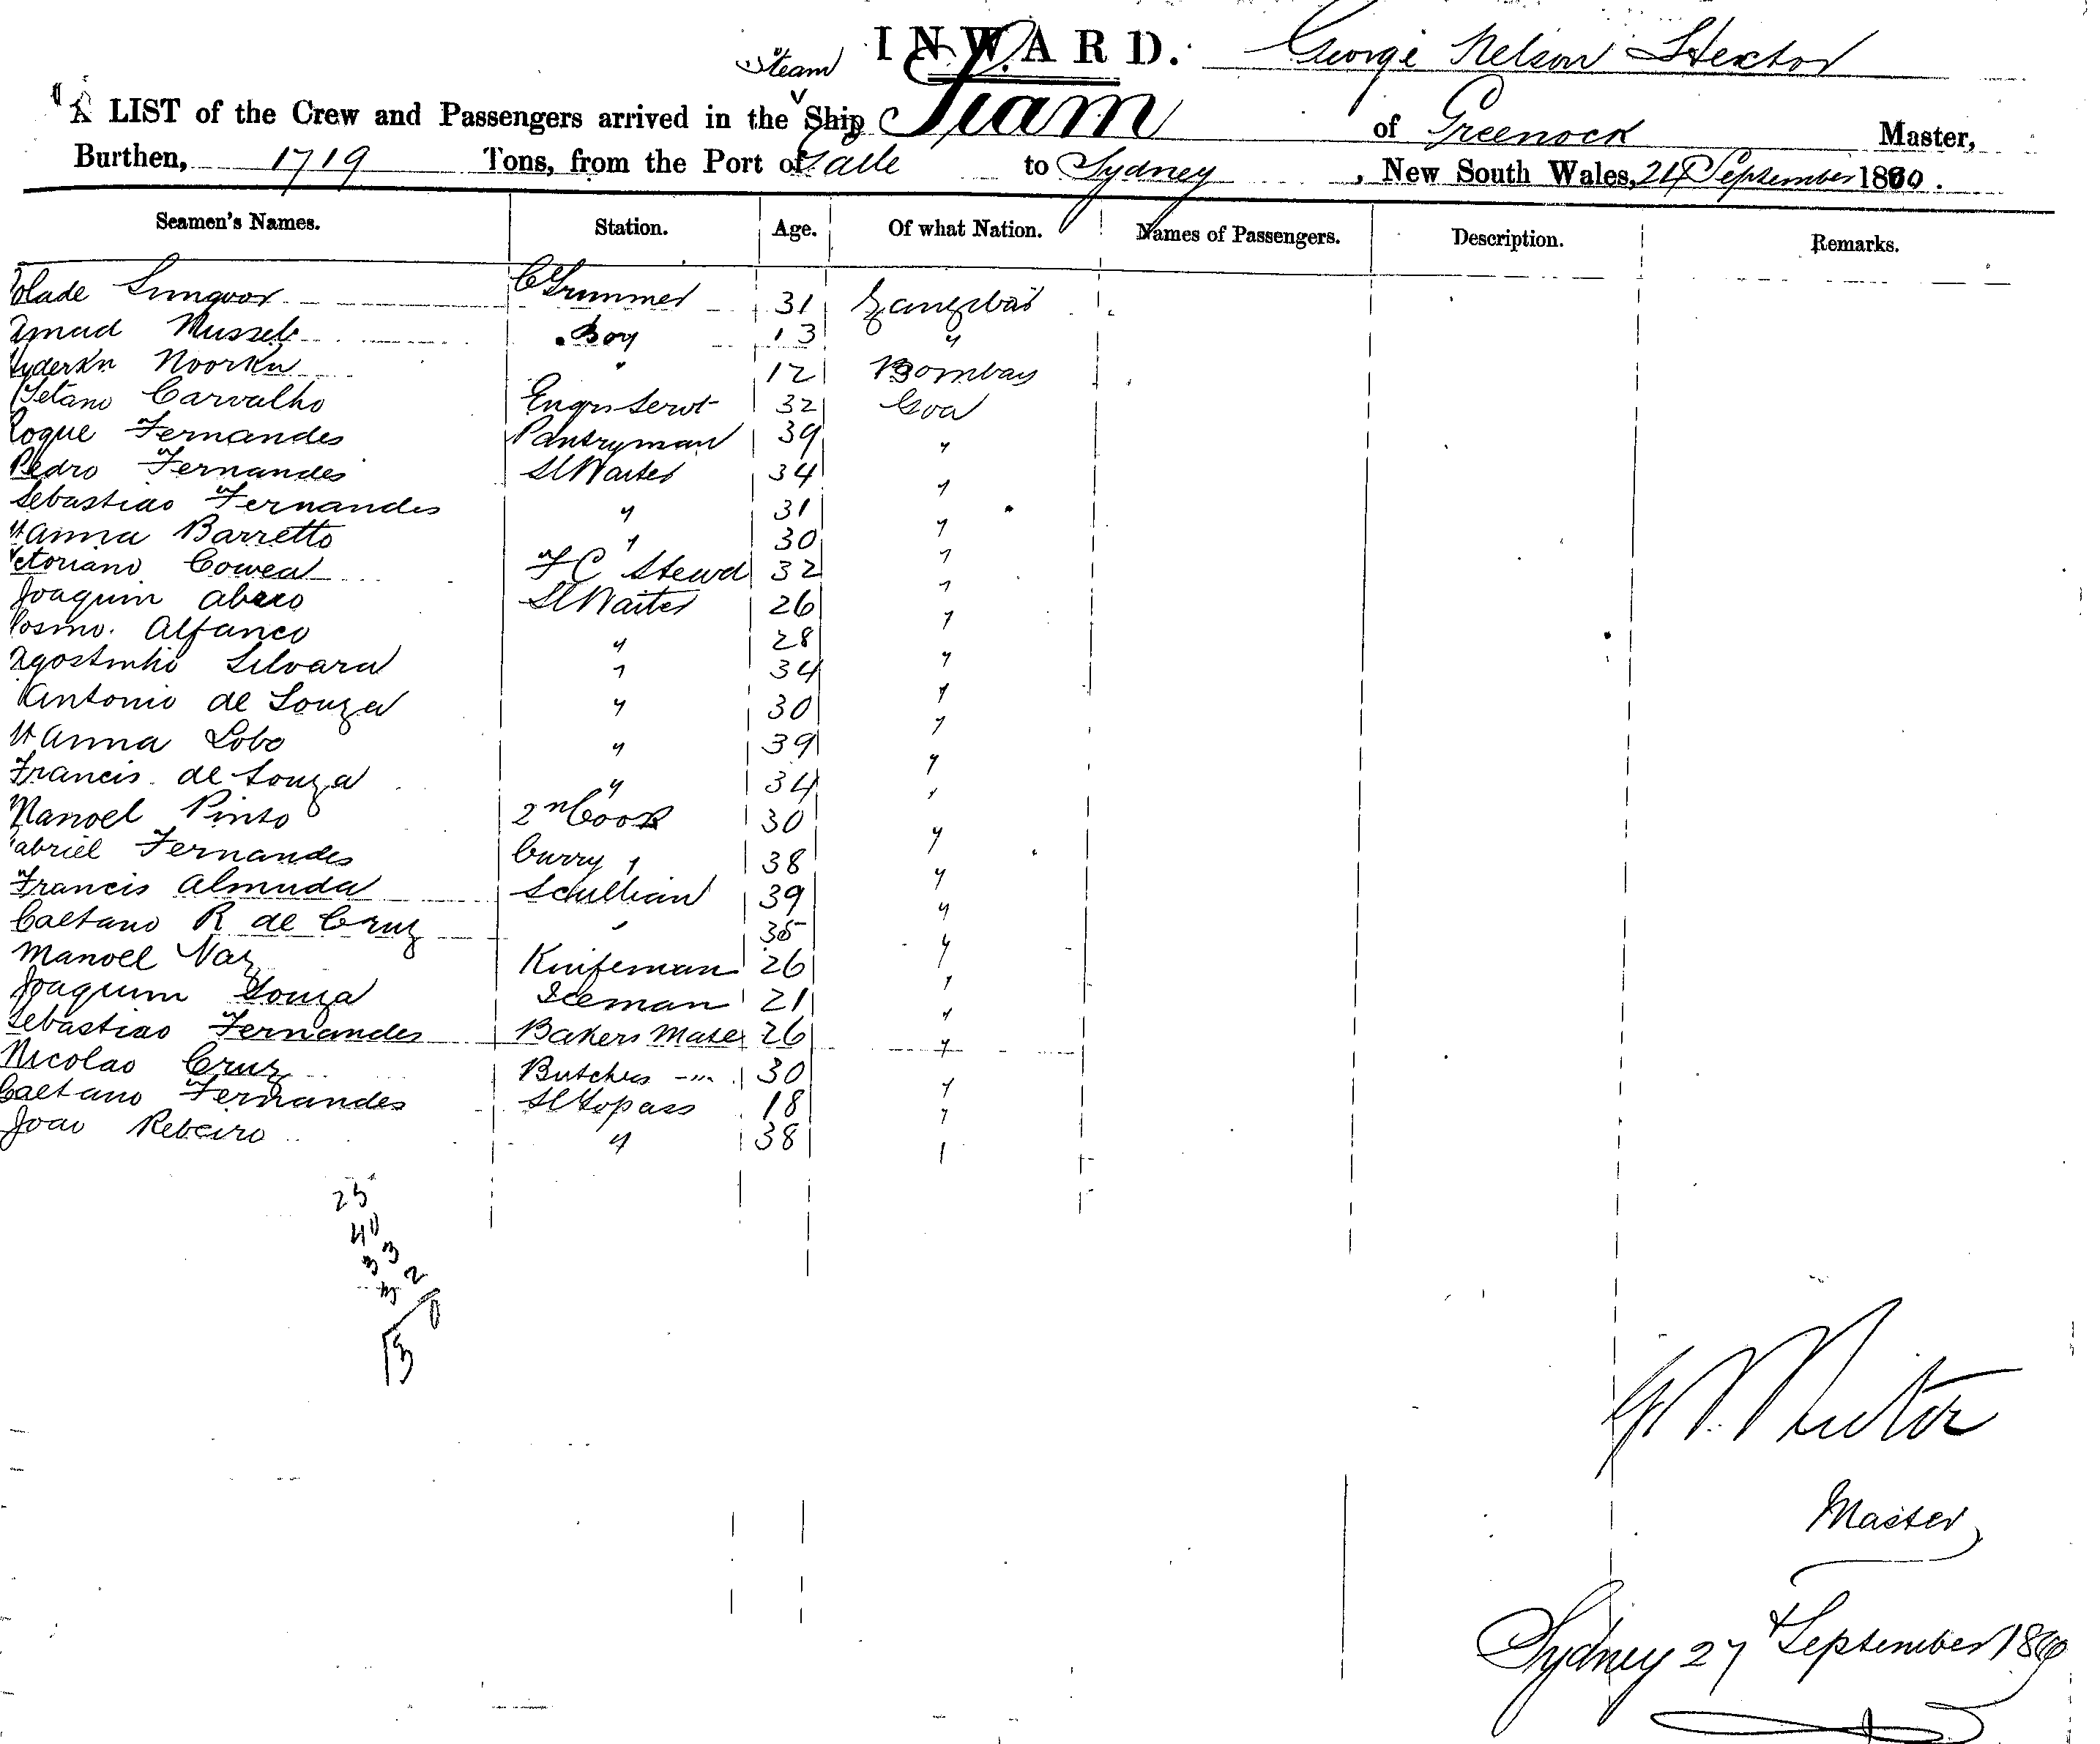 INWARD. George Nelson Hector
Steam
A LIST of the Crew and Passengers arrived in the Ship Siam of Greenock Master,
Burthen, 1719 Tons, from the Port of Galle to Sydney, New South Wales, 24 September 1880.
Seamen's Names. Station. Age. Of what Nation. Names of Passengers. Description. Remarks.
C Trimmer 31 Zanzibar
Amad Boy 13 "
Noorkn " 12 Bombay
Carvalho Engrs Servt 32 Goa
Roque Fernandes Pantryman 39 "
Pedro Fernandes Sl Waiter 34 "
Sebastiao Fernandes " 31 "
Barretto " 30 "
F C Stewd 32 "
Joaquim Sl Waiter 26 "
Cosmo. Alfanco " 28 "
Agostinho Silvara " 34 "
Antonio de Souza " 30 "
Lobo " 39 "
Francis de Souza " 34 "
Manoel Pinto 2nd Cook 30 "
Gabriel Fernandes Curry " 38 "
Francis Almuda Scullian 39 "
Caetano R de Cruz " 35 "
Manoel Vaz Knifeman 26 "
Joaquim Souza Iceman 21 "
Sebastiao Fernandes Bakers Mate 26 "
Nicolao Cruz Butchers -"- 30 "
Caetano Fernandes Sl Topass 18 "
Joao Rebeiro " 38 "
25
40
33
32
130
Master
Sydney 27 September 1880